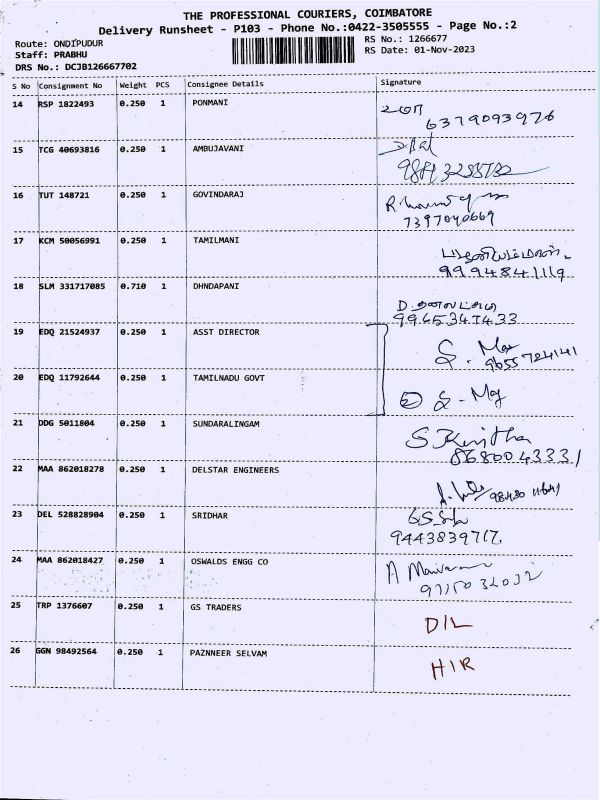 THE PROFESSIONAL COURIERS, COIMBATORE
Delivery Runsheet - P103 - Phone No.:0422-3505555 - Page No.:2
Route: ONDIPUDUR
RS No.: 1266677
Staff: PRABHU
RS Date: 01-Nov-2023
DRS No.: DCJB126667702
S No Consignment No Weight PCS Consignee Details Signature
14 RSP 1822493 0.250 1 PONMANI
6379093976
15 TCG 40693816 0.250 1 AMBUJAVANI
16 TUT 148721 0.250 1 GOVINDARAJ
7397040669
17 KCM 50056991 0.250 1 TAMILMANI
9994841119
18 SLM 331717085 0.710 1 DHNDAPANI
9965347433
19 EDQ 21524937 0.250 1 ASST DIRECTOR
9655724141
20 EDQ 11792644 0.250 1 TAMILNADU GOVT
21 DDG 5011804 0.250 1 SUNDARALINGAM
8680043331
22 MAA 862018278 0.250 1 DELSTAR ENGINEERS
23 DEL 528828904 0.250 1 SRIDHAR
9443839717
24 MAA 862018427 0.250 1 OSWALDS ENGG CO
25 TRP 1376607 0.250 1 GS TRADERS D/L
26 GGN 98492564 0.250 1 PAZNNEER SELVAM H/R